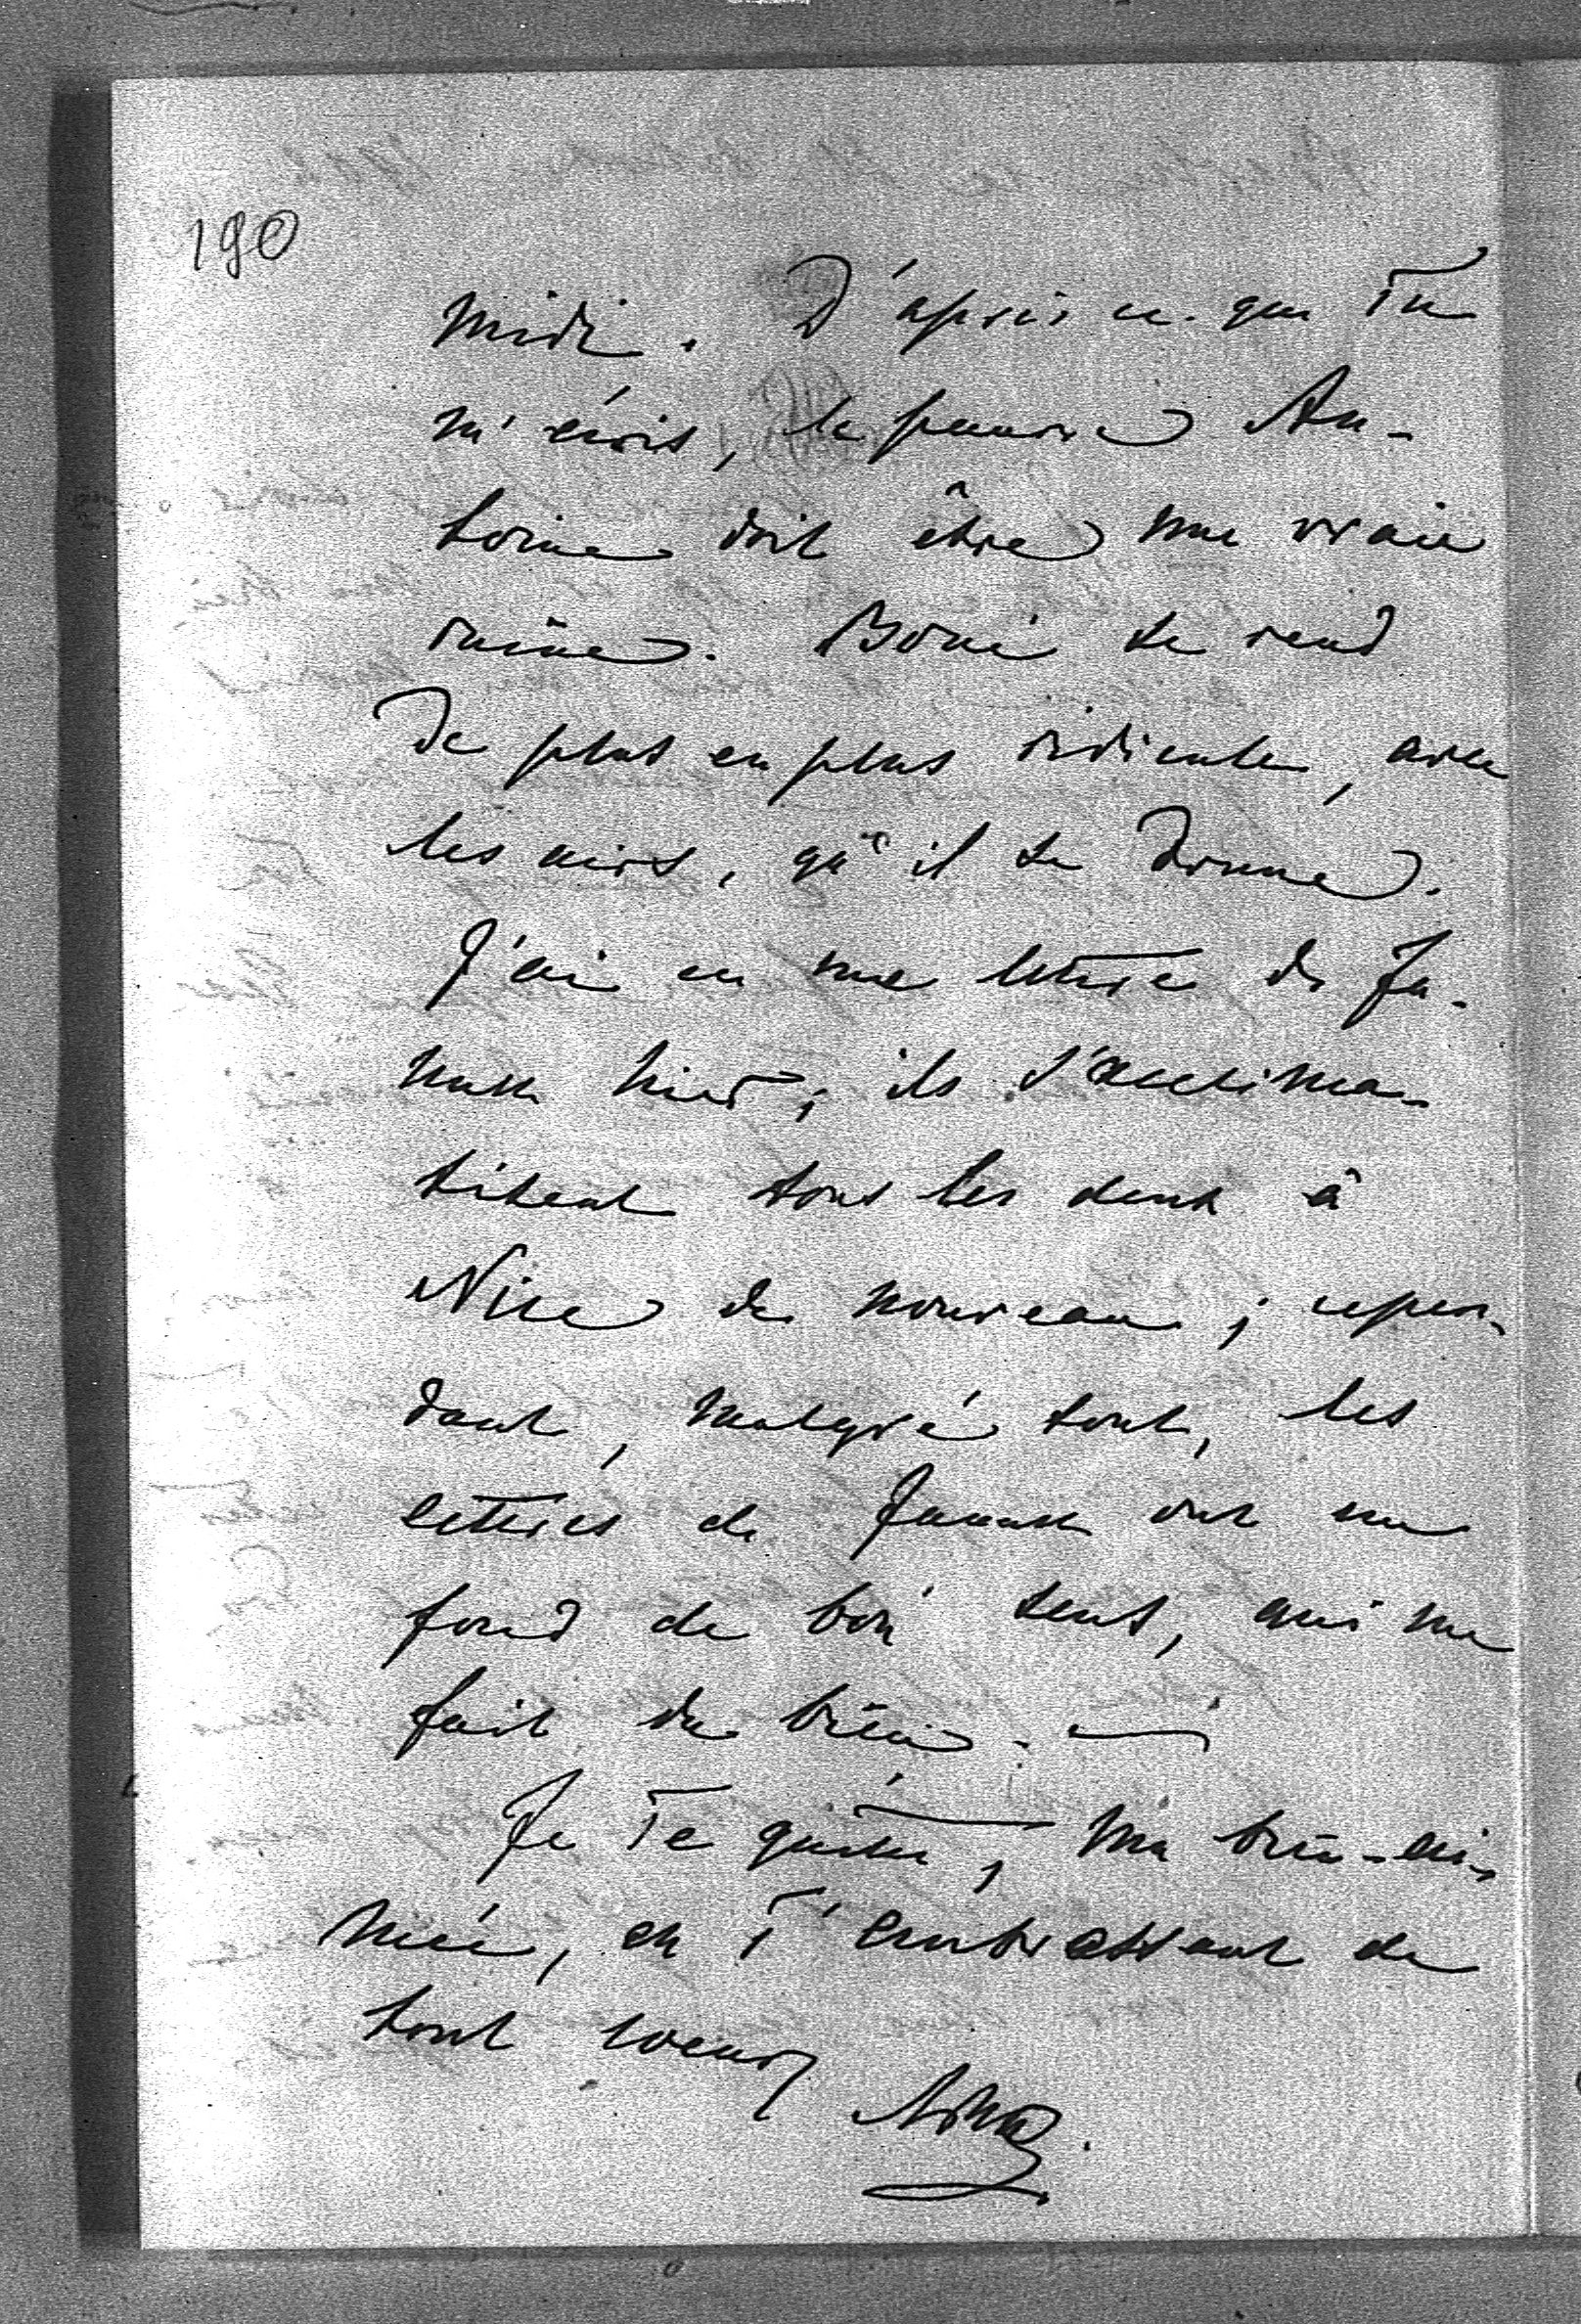 190
midi. D'après ce que Tu
m'écris, le pauvre An-
toine doit être une vraie
ruine. Boni se rend
de plus en plus ridicule, avec
les airs, qu'il se donne.
J'ai eu une lettre de Ja-
nush hier; ils s'acclima-
tisent tous les deux à
Nice de nouveau; cepen-
dant, malgré tout, les
lettres de Janush ont un
fond de bon sens, qui me
fait du bien. —
Je Te quitte, ma bien-ai-
mée, en T'embrassant de
tout coeur